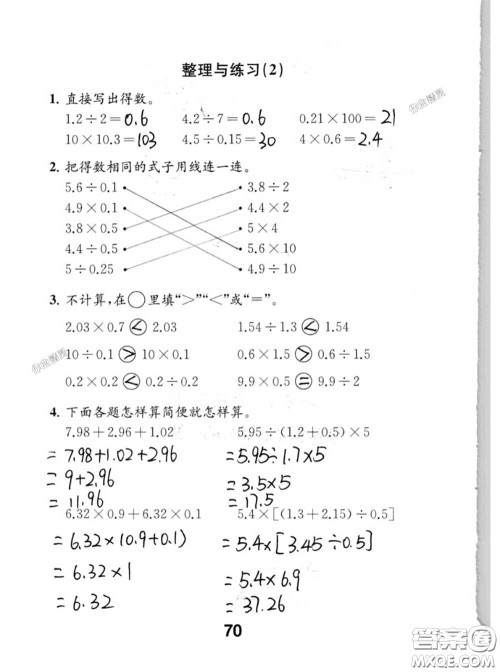 整理与练习(2)
1. 直接写出得数。
1.2÷2=0.6 4.2÷7=0.6 0.21×100=21
10×10.3=103 4.5÷0.15=30 4×0.6=2.4
2. 把得数相同的式子用线连一连。
5.6÷0.1 3.8÷2
4.9×0.1 4.4×2
3.8×0.5 5×4
4.4÷0.5 5.6×10
5÷0.25 4.9÷10
3. 不计算,在○里填“>”“<”或“=”。
2.03×0.7 < 2.03 1.54÷1.3 < 1.54
10÷0.1 > 10×0.1 0.6×1.5 > 0.6÷1.5
0.2×0.2 < 0.2÷0.2 9.9×0.5 = 9.9×0.5
4. 下面各题怎样算简便就怎样算。
7.98+2.96+1.02 5.95÷(1.2+0.5)×5
=7.98+1.02+2.96 =5.95÷1.7×5
=9+2.96 =3.5×5
=11.96 =17.5
6.32×0.9+6.32×0.1 5.4×[(1.3+2.15)÷0.5]
=6.32×(0.9+0.1) =5.4×[3.45÷0.5]
=6.32×1 =5.4×6.9
=6.32 =37.26
70
答案圈
MXQE.COM